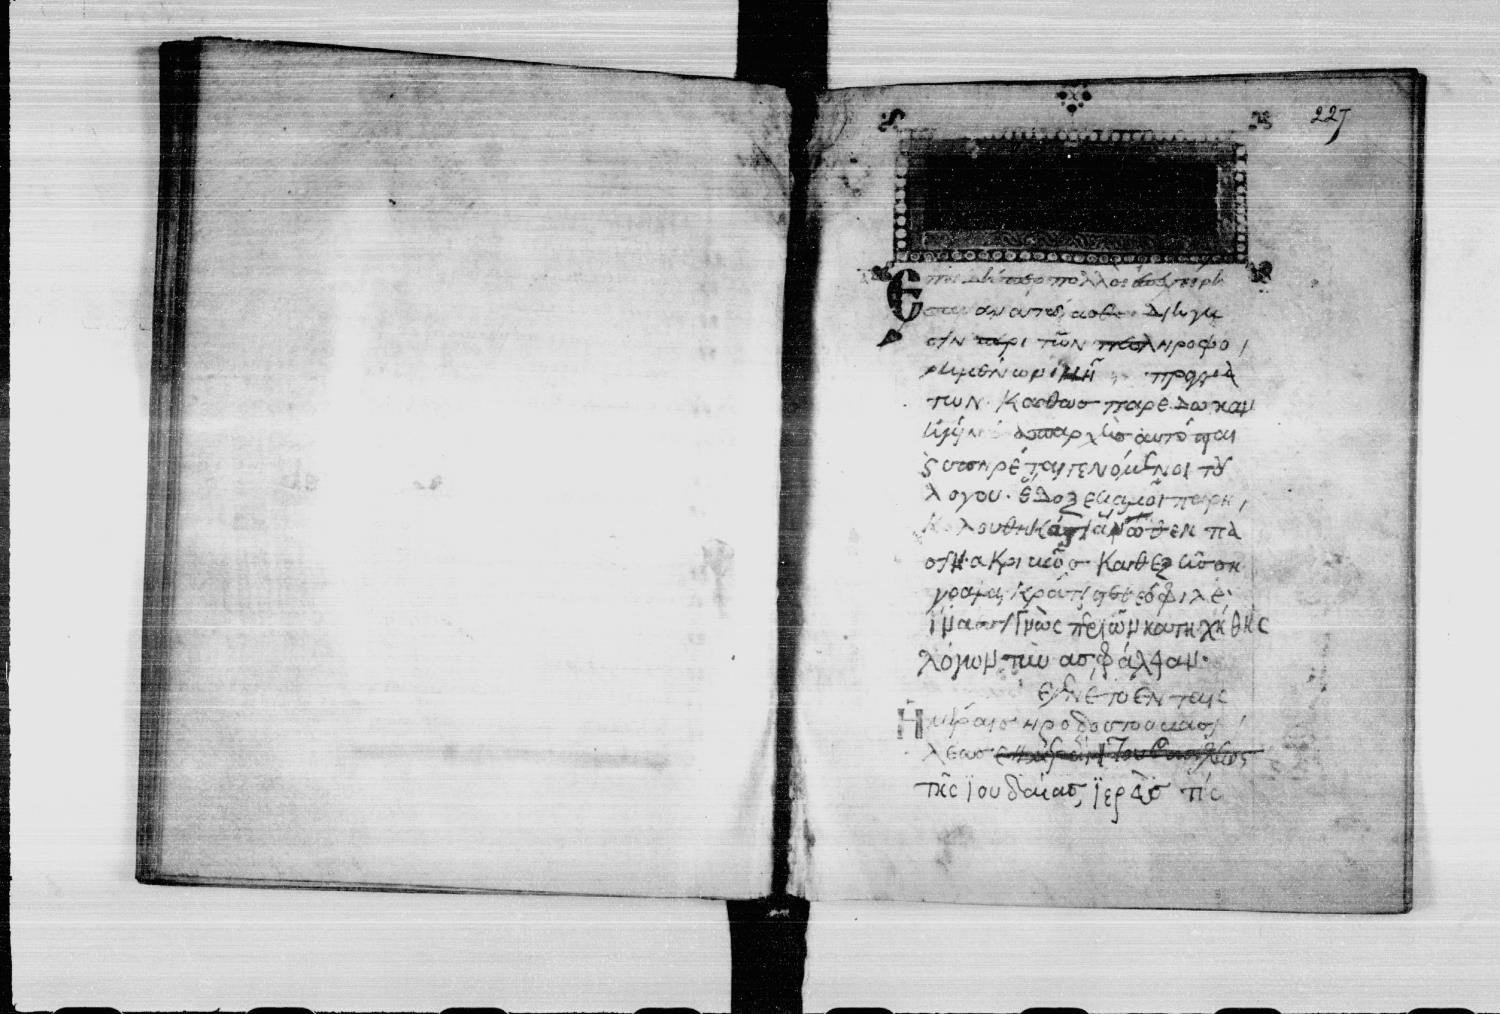 227
Επειδήπερ πολλοὶ ἐπεχεί
σαν ἀνατάξασθαι διήγη
σιν περὶ τῶν πεπληροφο
ρημένων ἡμῖν πραγμά
των. Καθὼς παρέδωκαν
ἡμῖν οἱ ἀπαρχῆς αὐτόπται
ϛ ὑπηρέται γενόμενοι τοῦ
λόγου. ἔδοξε καμοὶ παρη
κολουθηκότι ἄνωθεν πᾶ
σιν ἀκριβῶς καθεξῆς σοι
γράψαι κράτιστε θεόφιλε.
ἵνα
λόγων τὴν ἀσφάλειαν.
ἐγένετο ἐν ταῖς
Ημέραις ἡρώδου τοῦ βασι
λέως
τῆς ϊουδαίας, ϊερεὺς τίς